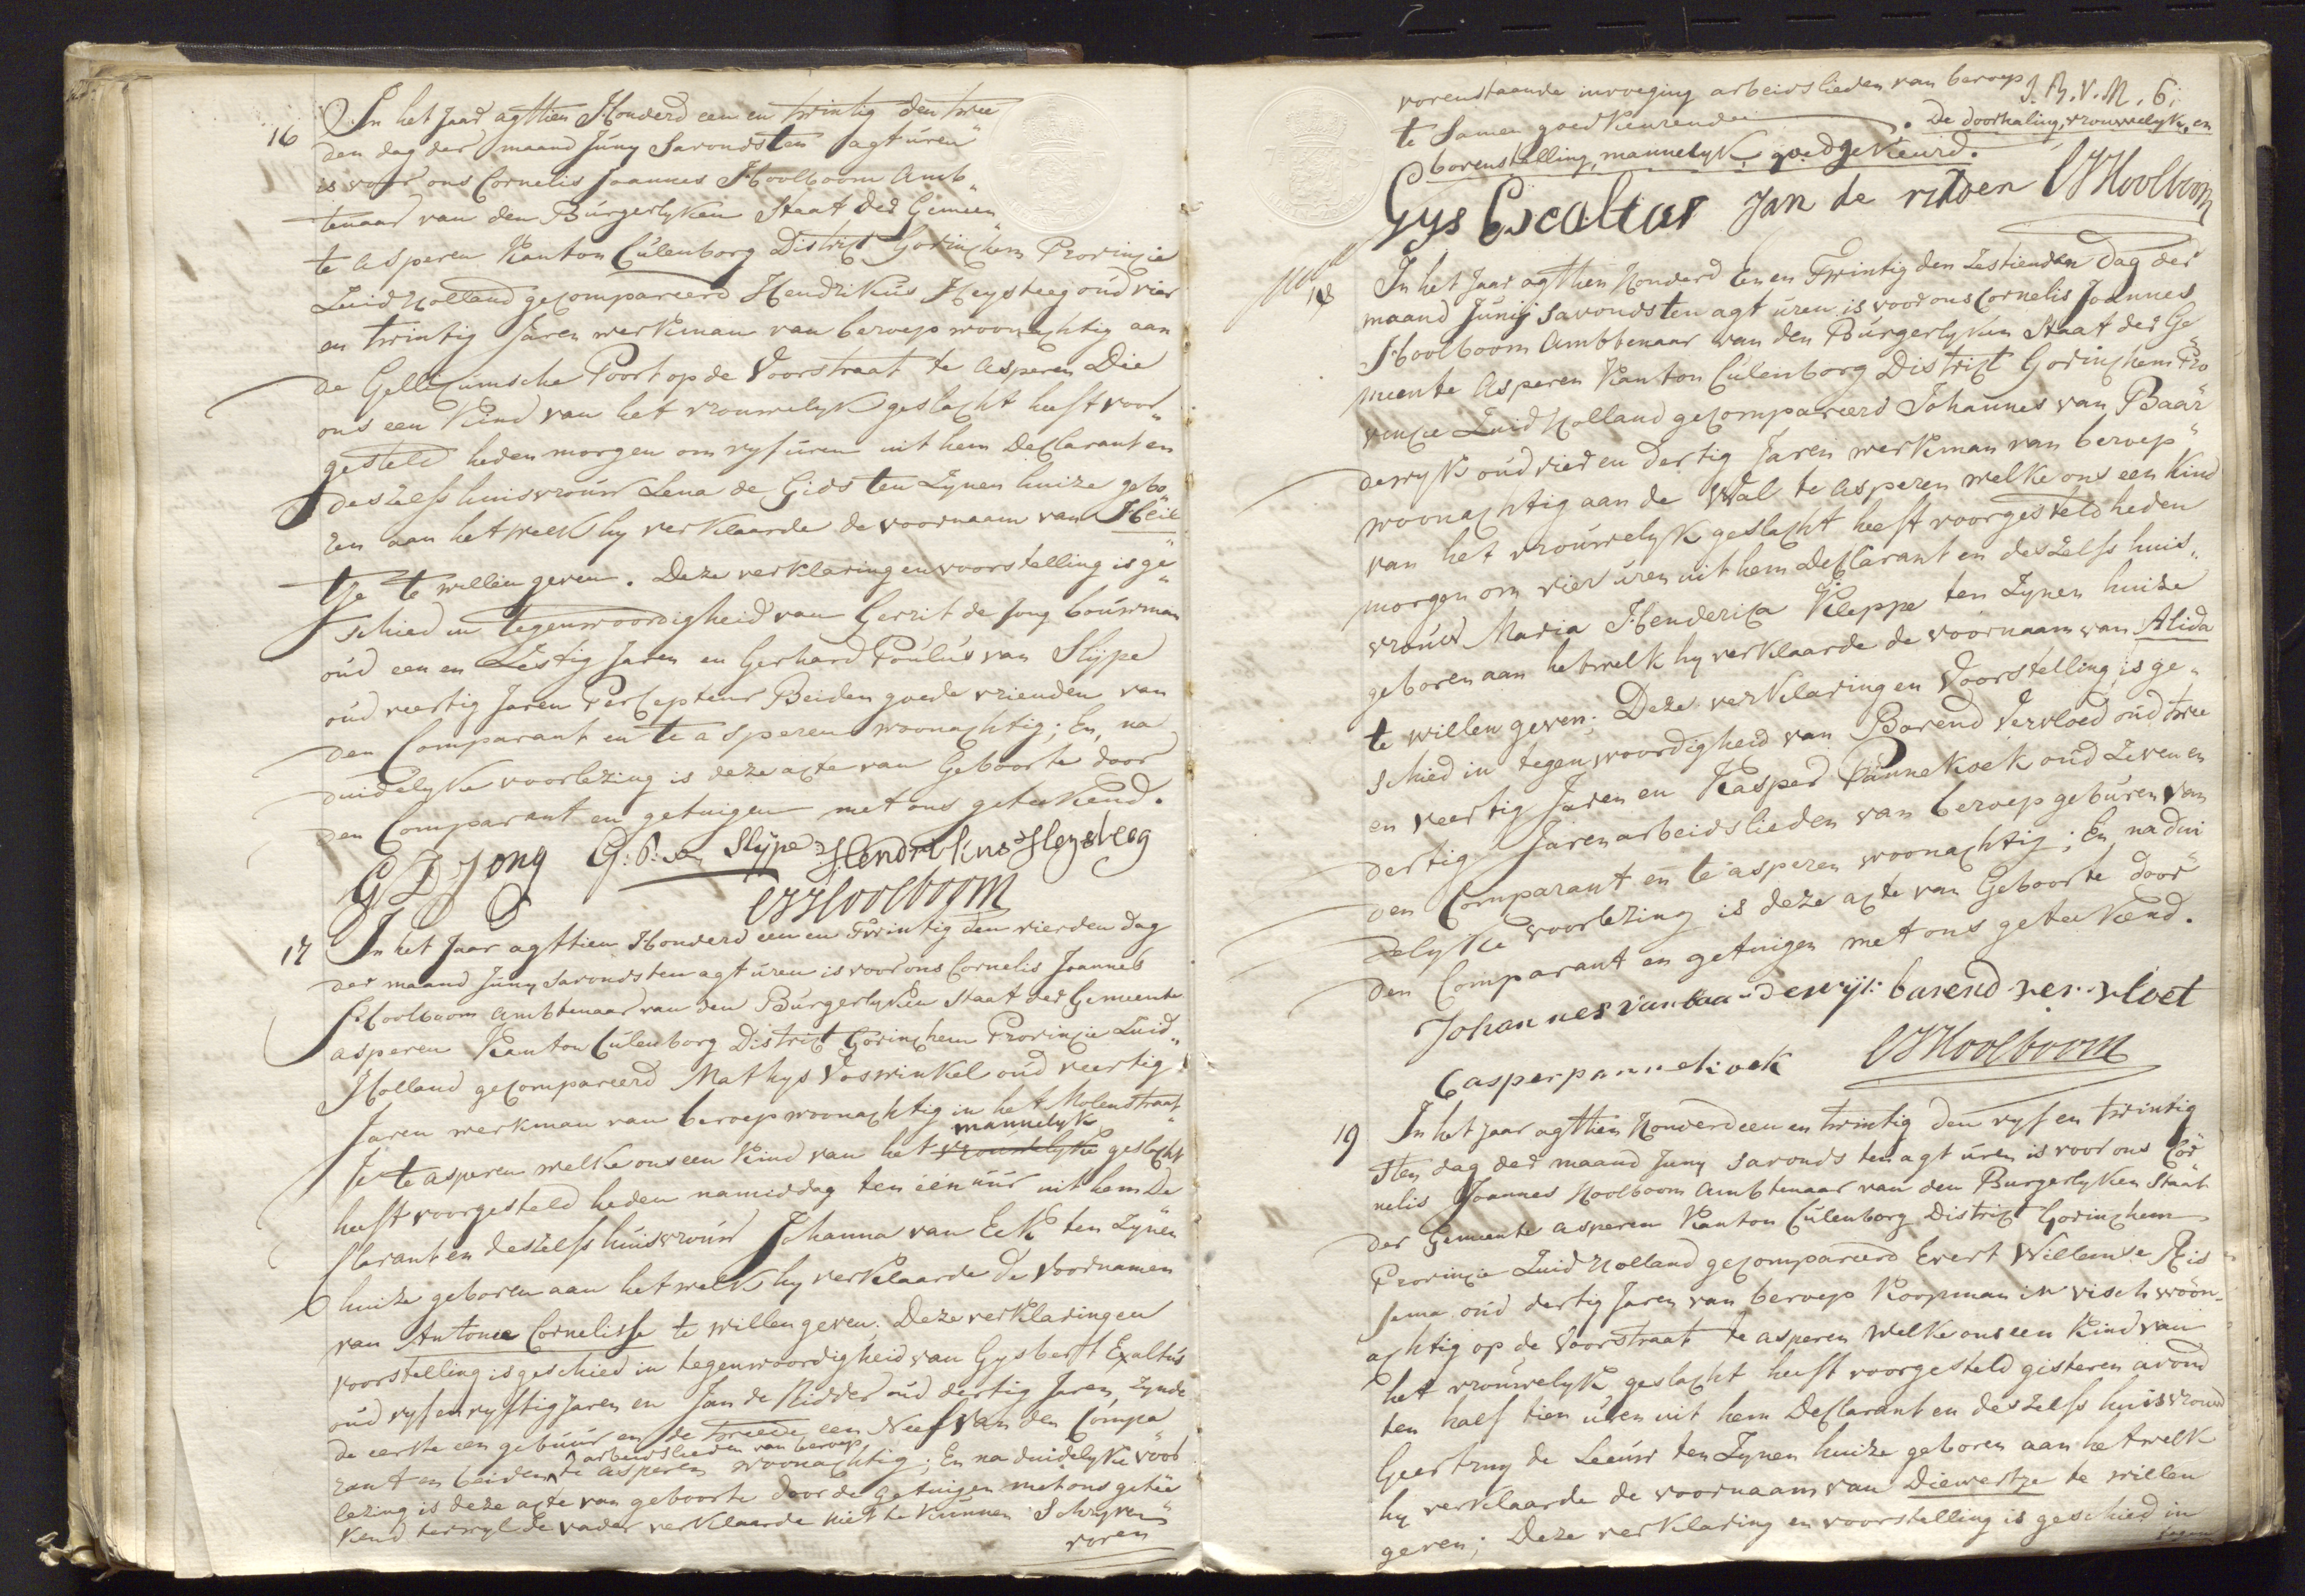 16 In het Jaar agttien Honderd een en twintig den twee
den dag der maand Juny Savonds ten agt uren
is voor ons Cornelis Joannes Hoolboom Amb„
tenaar van den Burgerlyken Staat der Gemeen„
te Asperen Kanton Culenborg District Gorinchem Provincie
Zuid Holland gecompareerd Hendrikus Heysteeg oud vier
en twintig Jaren werkman van beroep woonachtig aan
de Gellicumsche Poort op de Voorstraat te Asperen Die
ons een Kind van het vrouwelyk geslacht heeft voor„
gesteld heden morgen om vyf uren uit hem Declarant en
deszelfs huisvrouw Lena de Gids ten Zynen huize gebo„
ren aan het welk hy verklaarde de voornaam van Heil„
tje te willen geven. Deze verklaring en voorstelling is ge„
schied in tegenwoordigheid van Gerrit de Jong bouwman
oud een en Zestig Jaren en Gerhard Poulus van Slype
oud veertig Jaren Percepteur Beiden goede vrienden van
den Comparant en te asperen woonachtig; En, na
duidelyke voorlezing is deze acte van Geboorte door
den Comparant en getuigen met ons geteekend.
G D Jong G: P: van Slijpe Hendrikus Heysteeg
CJ Hoolboom
17 In het Jaar agttien Honderd een en Twintig den vierden dag
der maand Juny savonds ten agt uren is voor ons Cornelis Joannes
Hoolboom Ambtenaar van den Burgerlyken Staat der Gemeente
asperen Kanton Culenborg District Gorinchem Provincie Zuid„
Holland gecompareerd Mathys Voswinkel oud veertig
Jaren werkman van beroep woonachtig in het Molenstraat„
mannelyk
je te asperen welke ons een Kind van het vrouwelyke geslacht
heeft voorgesteld heden namiddag ten één uur uit hem De„
clarant en deszelfs huisvrouw Johanna van Eck ten Zynen
huize geboren aan het welk hy verklaarde de Voornamen
van Antonie Cornelisse te willen geven. Deze verklaring en
voorstelling is geschied in tegenwoordigheid van Gysbert Exaltus
oud vyf en vyftig Jaren en Jan de Ridder oud dertig Jaren, zynde
de eerste een gebuur en de tweede een Neef van den Compa„
arbeidslieden van beroep
rant en beiden te asperen woonachtig; En na duidelyke voor
lezing is deze acte van geboorte door de Getuigen met ons getee„
kend terwyl de vader verklaarde niet te kunnen Schryven
voren
vorenstaande invoeging arbeidslieden van beroep
te Samen goedkeurende . De doorhaling, vrouwelyke, en
bovenstelling, mannelyk goedgekeurd.
Gys Escaltus Jan de ridder CJ Hoolboom
18 In het Jaar agttien Honderd Een en Twintig den Zestienden Dag der
maand Junij savonds ten agt uren is voor ons Cornelis Joannes
Hoolboom Ambtenaar van den Burgerlyken Staat der Ge„
meente Asperen Kanton Culenborg District Gorinchem Pro„
vincie Zuid Holland gecompareerd Johannes van Baar„
dewyk oud vier en dertig Jaren werkman van beroep
woonachtig aan de Wal te Asperen welke ons een Kind
van het vrouwelyk geslacht heeft voorgesteld heden
morgen om vier uren uit hem declarant en deszelfs huis„
vrouw Maria Henderica Kleppe ten Zynen huize
geboren aan hetwelk hy verklaarde de voornaam van Alida
te willen geven; Deze verklaring en Voorstelling is ge„
schied in tegenwoordigheid van Barend Vervloed oud twee
en veertig Jaren en Kasper Pannekoek oud Zeven en
dertig Jaren arbeidslieden van beroep geburen van
den Comparant en te asperen woonachtig; En, na dui
delyke voorlezing is deze acte van Geboorte door
den Comparant en getuigen met ons geteekend.
Johannes van baardewijk barend ver vloet
Casper pannekoek CJ Hoolboom
19 In het Jaar agttien Honderd een en twintig den vyf en twintig
sten dag der maand Juny savonds ten agt uren is voor ons Cor„
nelis Joannes Hoolboom Ambtenaar van den Burgerlyken Staat
der Gemeente asperen Kanton Culenborg District Gorinchem
Provincie Zuid Holland gecompareerd Evert Willemse
oud dertig Jaren van beroep Koopman in visch woon„
achtig op de Voorstraat te asperen welke ons een Kind van
het vrouwelyk geslacht heeft voorgesteld gisteren avond
ten half tien uren uit hem Declarant en deszelfs huisvrouw
Geertruy de Leeuw ten Zynen huize geboren aan hetwelk
hy verklaarde de voornaam van Diewertje te willen
geven; Deze verklaring en voorstelling is geschied in